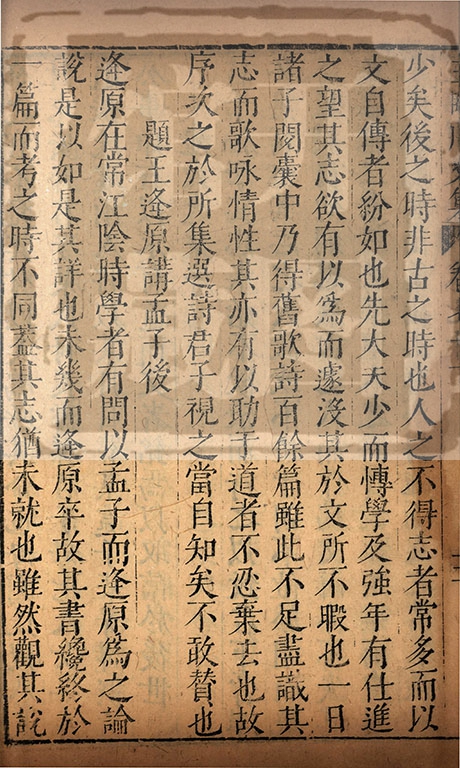 少矣後之時非古之時也人之不得志者常多而以
文自傳者紛如也先大夫少而慱學及強年有仕進
之望其志欲有以爲而遽沒其於文所不暇也一日
諸子閱囊中乃得舊歌詩百餘篇雖此不足盡識其
志而歌咏情性其亦有以助于道者不忍棄去也故
序次之於所集選詩君子視之當自知矣不敢替也
題王逢原講孟子後
逢原在常江陰時學者有問以孟子而逢原爲之論
說是以如是其詳也未幾而逢原卒故其書纔終於
一篇而考之時不同蓋其志猶未就也雖然觀其說